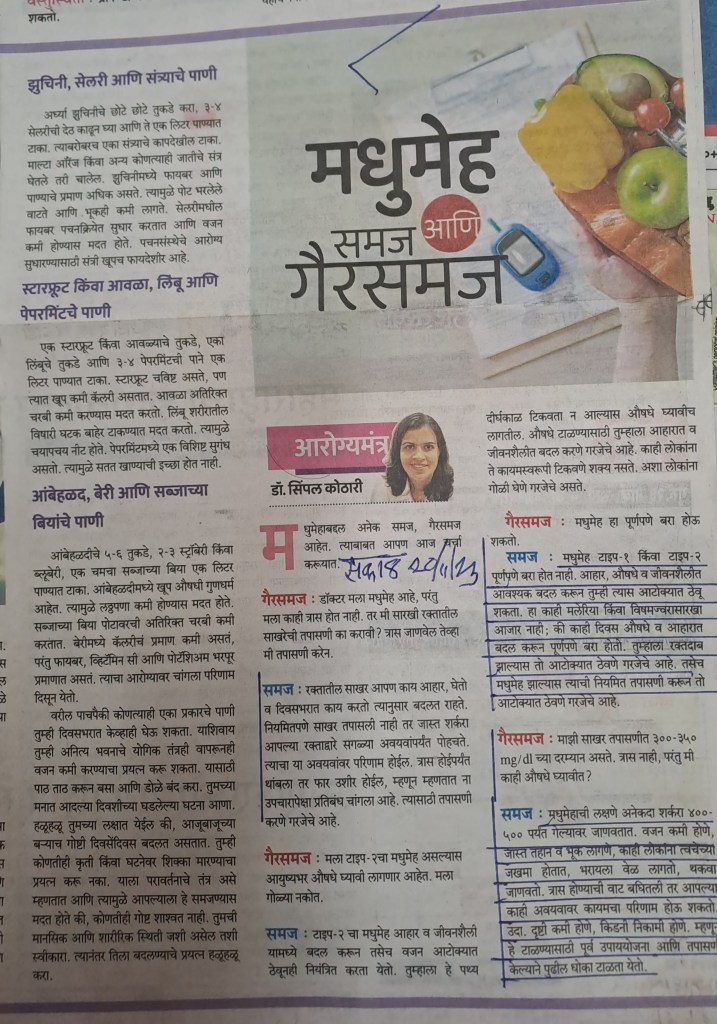 शकतो.
झुचिनी, सेलरी आणि संत्र्याचे पाणी
अर्ध्या झुचिनीचे छोटे छोटे तुकडे करा, ३-४
सेलरीची देठ काढून घ्या आणि ते एक लिटर पाण्यात
टाका. त्याबरोबरच एका संत्र्याचे कापदेखील टाका.
माल्टा ऑरेंज किंवा अन्य कोणत्याही जातीचे संत्र
घेतले तरी चालेल. झुचिनीमध्ये फायबर आणि
पाण्याचे प्रमाण अधिक असते. त्यामुळे पोट भरलेले
वाटते आणि भूकही कमी लागते. सेलरीमधील
फायबर पचनक्रियेत सुधार करतात आणि वजन
कमी होण्यास मदत होते. पचनसंस्थेचे आरोग्य
सुधारण्यासाठी संत्री खूपच फायदेशीर आहे.
स्टारफ्रूट किंवा आवळा, लिंबू आणि
पेपरमिंटचे पाणी
एक स्टारफ्रूट किंवा आवळ्याचे तुकडे, एका
लिंबूचे तुकडे आणि ३-४ पेपरमिंटची पाने एक
लिटर पाण्यात टाका. स्टारफ्रूट चविष्ट असते, पण
त्यात खूप कमी कॅलरी असतात. आवळा अतिरिक्त
चरबी कमी करण्यास मदत करतो. लिंबू शरीरातील
विषारी घटक बाहेर टाकण्यात मदत करते. त्यामुळे
चयापचय नीट होते. पेपरमिंटमध्ये एक विशिष्ट सुगंध
असतो. त्यामुळे सतत खाण्याची इच्छा होत नाही.
आंबेहळद, बेरी आणि सब्जाच्या
बियांचे पाणी
आंबेहळदीचे ५-६ तुकडे, २-३ स्ट्रॉबेरी किंवा
ब्लूबेरी, एक चमचा सब्जाच्या बिया एक लिटर
पाण्यात टाका. आंबेहळदीमध्ये खूप औषधी गुणधर्म
आहेत. त्यामुळे लठ्ठपणा कमी होण्यास मदत होते.
सब्जाच्या बिया पोटावरची अतिरिक्त चरबी कमी
करतात. बेरीमध्ये कॅलरींचं प्रमाण कमी असतं,
परंतु फायबर, व्हिटॅमिन सी आणि पोटॅशिअम भरपूर
प्रमाणात असतं. त्याचा आरोग्यावर चांगला परिणाम
दिसून येतो.
वरील पाचपैकी कोणत्याही एका प्रकारचे पाणी
तुम्ही दिवसभरात केव्हाही घेऊ शकता. याशिवाय
तुम्ही अनित्य भवनाचे योगिक तंत्रही वापरूनही
वजन कमी करण्याचा प्रयत्न करू शकता. यासाठी
पाठ ताठ करून बसा आणि डोळे बंद करा. तुमच्या
मनात आदल्या दिवशीच्या घडलेल्या घटना आणा.
हळूहळू तुमच्या लक्षात येईल की, आजूबाजूच्या
बऱ्याच गोष्टी दिवसेंदिवस बदलत असतात. तुम्ही
कोणतीही कृती किंवा घटनेवर शिक्का मारण्याचा
प्रयत्न करू नका. याला परावर्तनाचे तंत्र असे
म्हणतात आणि त्यामुळे आपल्याला हे समजण्यास
मदत होते की, कोणतीही गोष्ट शाश्वत नाही. तुमची
मानसिक आणि शारीरिक स्थिती जशी असेल तशी
स्वीकारा. त्यानंतर तिला बदलण्याचे प्रयत्न हळूहळू
करा.
मधुमेह
समज आणि
गैरसमज
आरोग्यमंत्र
डॉ. सिंपल कोठारी
मधुमेहाबद्दल अनेक समज, गैरसमज
आहेत. त्याबाबत आपण आज चर्चा
करूयात. सकाळ
गैरसमज : डॉक्टर मला मधुमेह आहे, परंतु
मला काही त्रास होत नाही. तर मी सारखी रक्तातील
साखरेची तपासणी का करावी? त्रास जाणवेल तेव्हा
मी तपासणी करेन.
समज : रक्तातील साखर आपण काय आहार, घेतो
व दिवसभरात काय करतो त्यानुसार बदलत राहते.
नियमितपणे साखर तपासली नाही तर जास्त शर्करा
आपल्या रक्ताद्वारे सगळ्या अवयवांपर्यंत पोहचते.
त्याचा या अवयवांवर परिणाम होईल. त्रास होईपर्यंत
थांबला तर फार उशीर होईल, म्हणून म्हणतात ना
उपचारापेक्षा प्रतिबंध चांगला आहे. त्यासाठी तपासणी
करणे गरजेचे आहे.
गैरसमज : मला टाइप-२चा मधुमेह असल्यास
आयुष्यभर औषधे घ्यावी लागणार आहेत. मला
गोळ्या नकोत.
समज : टाइप-२ चा मधुमेह आहार व जीवनशैली
यामध्ये बदल करून तसेच वजन आटोक्यात
ठेवूनही नियंत्रित करता येतो. तुम्हाला हे पथ्य
दीर्घकाळ टिकवता न आल्यास औषधे घ्यावीच
लागतील. औषधे टाळण्यासाठी तुम्हाला आहारात व
जीवनशैलीत बदल करणे गरजेचे आहे. काही लोकांना
ते कायमस्वरूपी टिकवणे शक्य नसते. अशा लोकांना
गोळी घेणे गरजेचे असते.
गैरसमज : मधुमेह हा पूर्णपणे बरा होऊ
शकतो.
समज : मधुमेह टाइप-१ किंवा टाइप-२
पूर्णपणे बरा होत नाही. आहार, औषधे व जीवनशैलीत
आवश्यक बदल करून तुम्ही त्यास आटोक्यात ठेवू
शकता. हा काही मलेरिया किंवा विषमज्वरासारखा
आजार नाही; की काही दिवस औषधे व आहारात
बदल करून पूर्णपणे बरा होतो. तुम्हाला रक्तदाब
झाल्यास तो आटोक्यात ठेवणे गरजेचे आहे. तसेच
मधुमेह झाल्यास त्याची नियमित तपासणी करून तो
आटोक्यात ठेवणे गरजेचे आहे.
गैरसमज : माझी साखर तपासणीत ३००-३५०
mg/dl च्या दरम्यान असते. त्रास नाही, परंतु मी
काही औषधे घ्यावीत?
समज : मधुमेहाची लक्षणे अनेकदा शर्करा ४००-
५०० पर्यंत गेल्यावर जाणवतात. वजन कमी होणे,
जास्त तहान व भूक लागणे, काही लोकांना त्वचेच्या
जखमा होतात, भरायला वेळ लागतो, थकवा
जाणवतो. त्रास होण्याची वाट बघितली तर आपल्या
काही अवयवावर कायमचा परिणाम होऊ शकतो.
उदा. दृष्टी कमी होणे, किडनी निकामी होणे. म्हणून
हे टाळण्यासाठी पूर्व उपाययोजना आणि तपासणी
केल्याने पुढील धोका टाळता येतो.